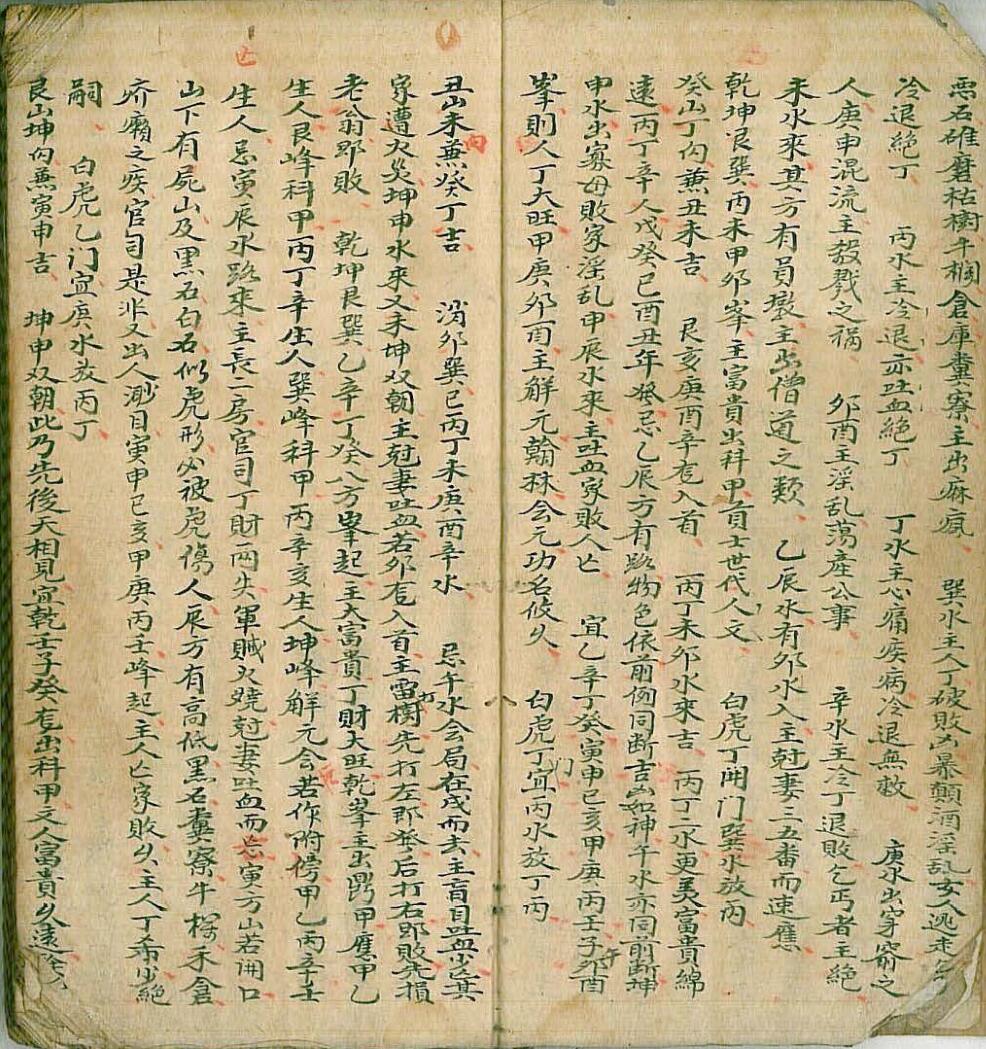 惡石碓磨枯樹牛欄倉庫糞寮主出麻瘋 巽水主人丁破敗凶暴顛酒淫乱女人逃走
冷退絶丁 丙水主冷退亦吐血絶丁 丁水主心痛疾病冷退無救 庚水出穿窬之
人庚申混流主殺戮之禍 夘酉主淫乱蕩產公事 辛水主冷丁退敗乞丐者主絶
未水來其方有員墩主出僧道之類 乙辰水有夘水入主尅妻三五番而速應
乾坤艮巽丙未甲夘峯主富貴出科甲首士世代人文 白虎丁開门巽水放丙
癸山丁向兼丑未吉 艮亥庚酉辛㐬入首 丙丁未夘水來吉 丙丁二水更美富貴綿
遠丙丁辛人戊癸巳酉丑年發忌乙辰方有路物色依前例同断吉凶如神午水亦同前断坤
申水出寡母敗家淫乱甲辰水來主吐血家敗人亡 宜乙辛丁癸寅申巳亥甲庚丙壬子午夘酉
峯則人丁大旺甲庚夘酉主解元翰林会元功名攸久 白虎丁门宜丙水放丁丙
丑山未向兼癸丁吉 消夘巽巳丙丁未庚酉辛水 忌午水会局在戌而去主盲目吐血少亡其
家遭火災坤申水來又未坤双朝主尅妻吐血若夘㐬入首主雷打樹先打左郎發后打右郎敗先損
老翁郎敗 乾坤艮巽乙辛丁癸八方峯起主大富貴丁財大旺乾峯主出鼎甲應甲乙
生人艮峰科甲丙丁辛生人巽峰科甲丙辛亥生人坤峰解元会若作附傍甲乙丙辛壬
生人忌寅辰水路來主長二房官司丁財両失軍賊火燒尅妻吐血而亡寅方山若開口
山下有屍山及黑石白石似虎形必被虎傷人辰方有高低黑石糞寮牛樑禾倉
疥癩之疾官司是非又出人渺目寅申巳亥甲庚丙壬峰起主人亡家敗久主人丁希少絶
嗣 白虎乙门宜庚水放丙丁
艮山坤向兼寅申吉 坤申双朝此乃先後天相見宜乾壬子癸㐬出科甲文人富貴久遠